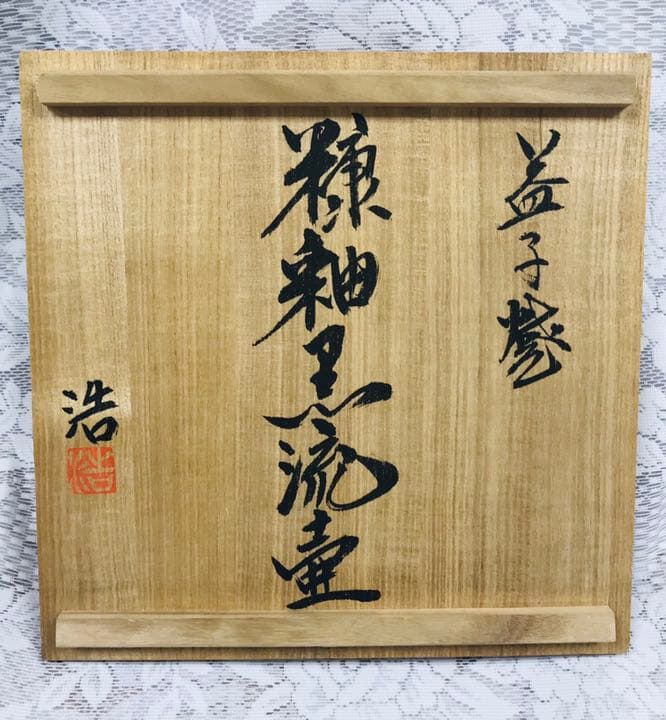 益子焼
糠釉黒流壷
浩
浩